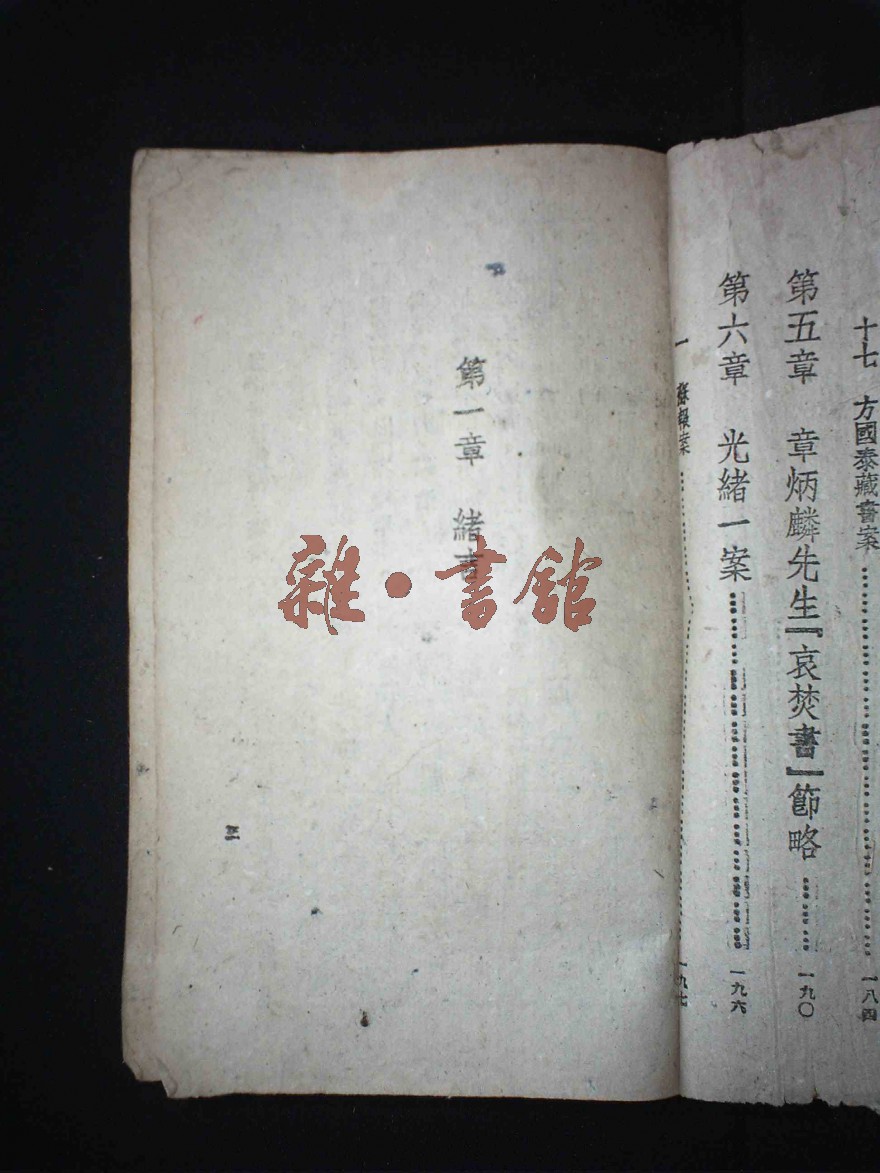 十七 方國泰藏書案 一八四
第五章 章炳麟先生『哀焚書』節略 一九〇
第六章 光緒一案 一九六
一 蘇報案 一九七
第一章 緒言
三
雜·書館